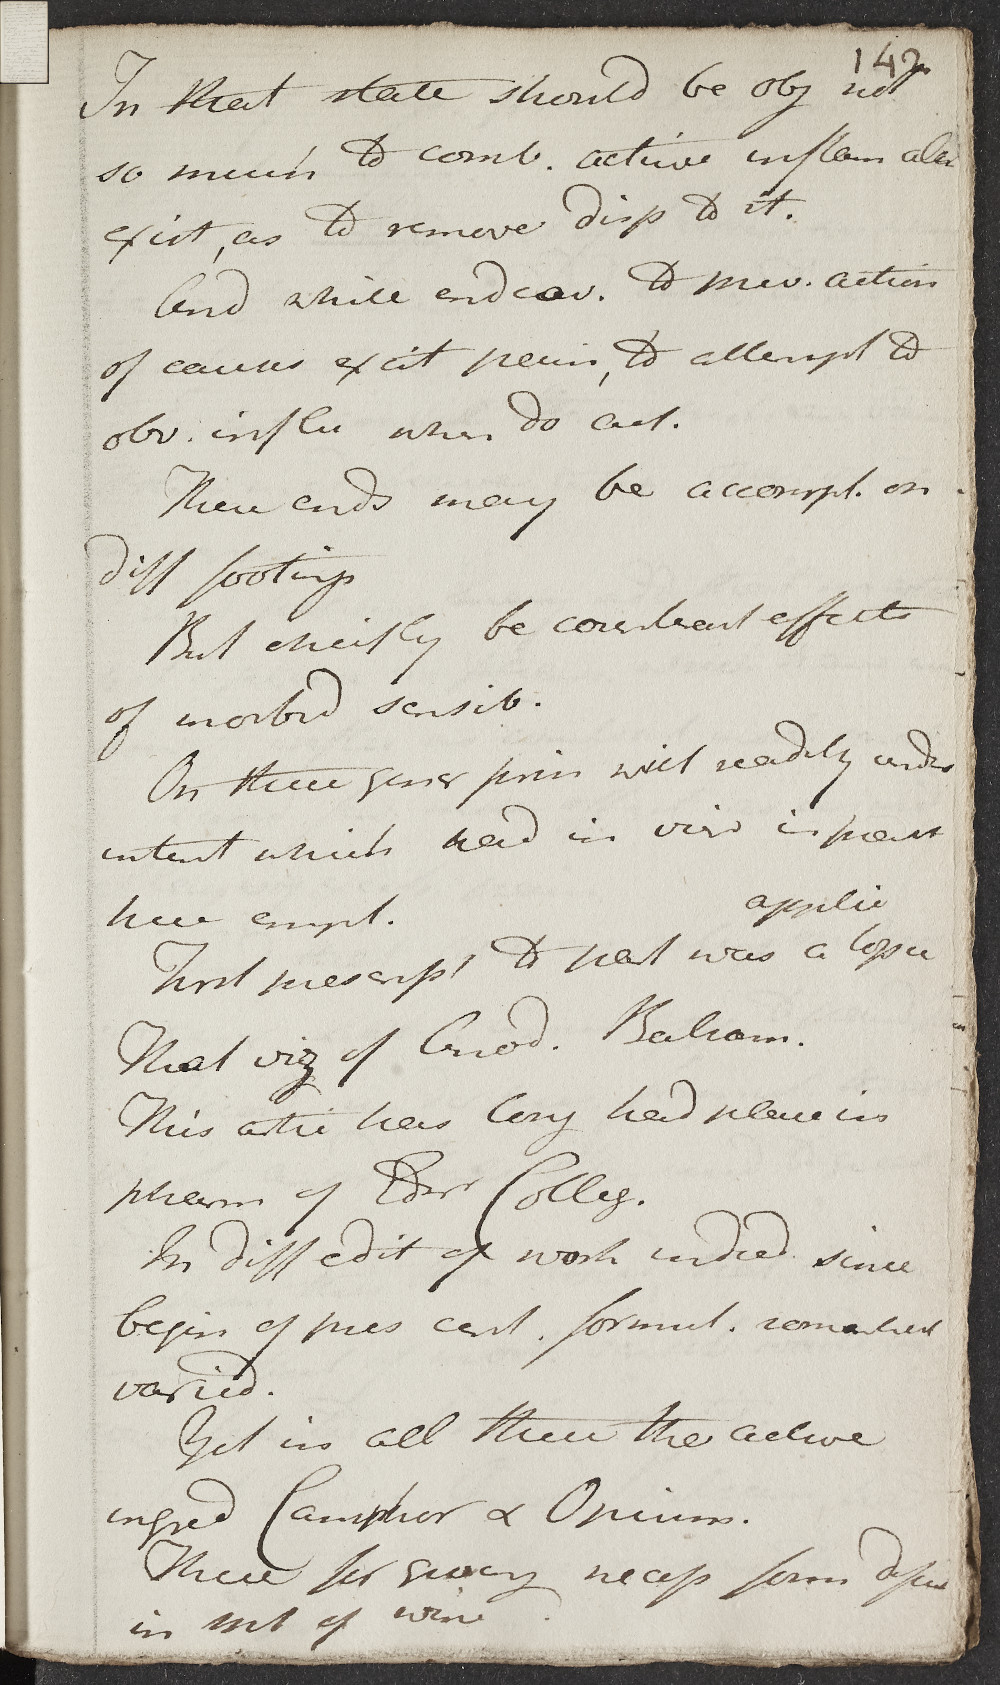 142
In that state should be obj not
so much to comb. active inflam alr
exist, as to remove disp to it.
And while endeav. to prev. action
of causes excit pain, to attempt to
obv. influ when do act.
These ends may be accompl. on
diff footings
But chiefly be counteract effects
of morbid sensib.
On these gener prin will readily under
intent which had in view in pract
here empl.
applic
First prescript to part was a
That viz of Anod. Balsam.
This artic has long had place in
pharm of Edinr Colleg.
In diff edit of work indeed since
begin of pres cent. formul. remarked
varied.
Yet in all these the active
ingred Camphor & Opium.
These for giving necess form
in of wine